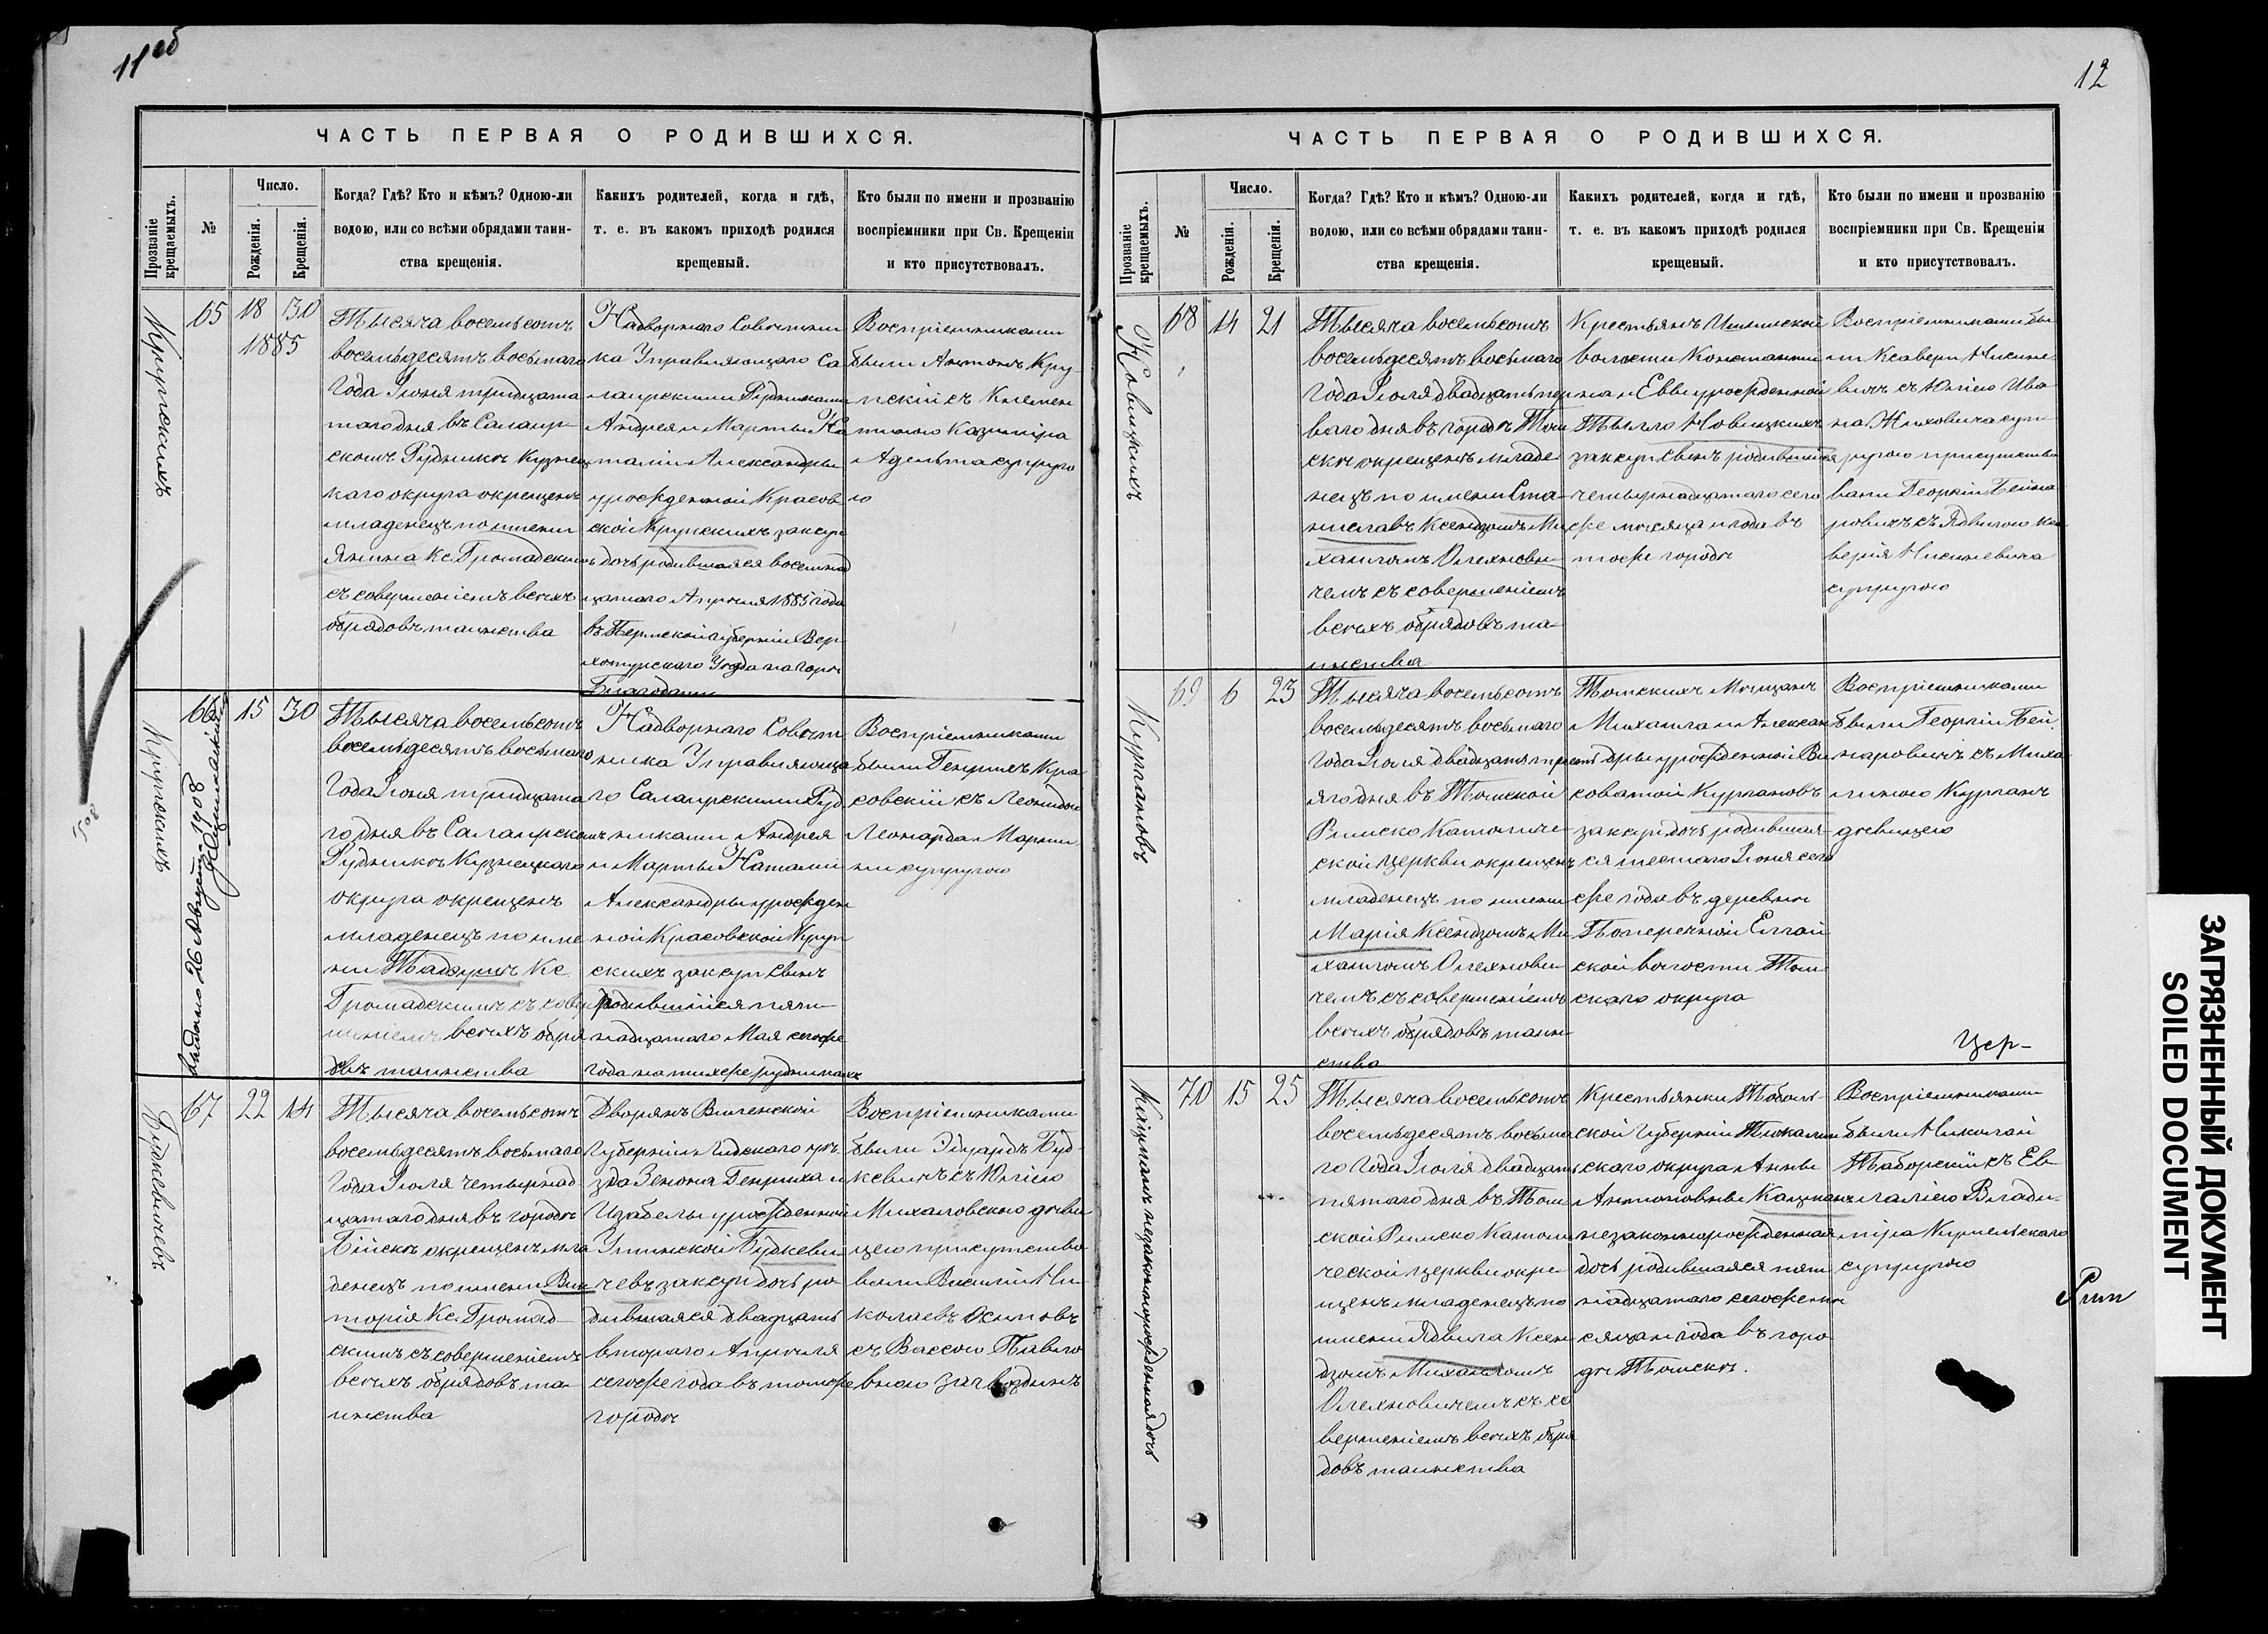 11об
ЧАСТЬ ПЕРВАЯ О РОДИВШИХСЯ.
Прозваніе крещаемыхъ.
№
Число.
Рожденія.
Крещенія.
Когда? Гдѣ? Кто и кѣмъ? Одною-ли
водою, или со всѣми обрядами таин-
ства крещенія.
Какихъ родителей, когда и гдѣ,
т. е. въ какомъ приходѣ родился
крещеный.
Кто были по имени и прозванію
воспріемники при Св. Крещеніи
и кто присутствовалъ.
Крупскихъ
65
18
30
1885
Тысяча восемьсотъ
восемьдесятъ восьмаго
Года Іюня тридцата
таго дня въ Салаир-
скомъ Рудникѣ Кузнец
каго округа окрещенъ
младенецъ по имени
Янина Кс. Громадскимъ
съ совершеніемъ всѣхъ
обрядовъ таинства
Надворнаго Совѣтни
ка Управляющаго Са
лаирскими Рудниками
Андрея и Марты На
таліи Александры
урожденной Красов
ской Крупскихъ закон
дочь родившаяся восемнад
цатаго Апрѣля 1885 года
въ Пермской губерніи Вер
хотурскаго Уѣзда на горѣ
Благодати
Воспріемниками
были Антонъ Кру
пскій съ Клемен
тиною Казимира
Адельта супруго
ю
Крупскихъ
66
15
30
выдано 26 Августа 1908
Тысяча восемьсотъ
восемьдесятъ восьмаго
Года Іюня тридцата
го дня въ Салаирскомъ
Рудникѣ Кузнецкаго
округа окрещенъ
младенецъ по име
ни Тадеушъ Кс.
Громадскимъ съ совер
шеніемъ всѣхъ обря
довъ таинства
Надворнаго Совѣт
ника Управляюща
го Салаирскими Руд
никами Андрея
и Марты Наталіи
Александры урожден
ной Красовской Круп
скихъ закон сынъ
родившійся пят
надцатаго Мая сегоже
года на тѣхже рудникахъ
Воспріемниками
были Генрихъ Кра
совскій съ Леонидою
Леонарда Марти
ни супругою
Будкевичевъ
67
22
14
Тысяча восемьсотъ
восемьдесятъ восьмаго
Года Іюля четырнад
цатаго дня въ городѣ
Бійскѣ окрещенъ мла
денецъ по имени Вик
торія Кс. Громад
скимъ съ совершеніемъ
всѣхъ обрядовъ та
инства
Дворянъ Виленской
Губерніи Лидскаго уѣ
зда Зенона Генриха и
Изабелы урожденной
Утинской Будкеви
чевъ закон дочь ро
дившаяся двадцать
втораго Апрѣля
сегоже года въ томже
городѣ
Воспріемниками
были Эдуардъ Буд
кевичъ съ Юліею
Михаловскою дѣви
цею присутство
вали Василій Ни
колаевъ Осиповъ
съ Вассою Павло
вною Загвоздинъ
12
ЧАСТЬ ПЕРВАЯ О РОДИВШИХСЯ.
Прозваніе крещаемыхъ.
№
Число.
Рожденія.
Крещенія.
Когда? Гдѣ? Кто и кѣмъ? Одною-ли
водою, или со всѣми обрядами таин-
ства крещенія.
Какихъ родителей, когда и гдѣ,
т. е. въ какомъ приходѣ родился
крещеный.
Кто были по имени и прозванію
воспріемники при Св. Крещеніи
и кто присутствовалъ.
Новицкихъ
68
14
21
Тысяча восемьсотъ
восемьдесятъ восьмаго
Года Іюля двадцать пер
ваго дня въ городѣ Том
скѣ окрещенъ младе
нецъ по имени Ста-
ниславъ Ксендзомъ Ми
хаиломъ Олехнови
чемъ съ совершеніемъ
всѣхъ обрядовъ та-
инства
Крестьянъ Ишимской
волости Константи
на и Еввы урожденной
Тылло Новицкихъ
закон сынъ родившійся
четырнадцатаго сего
же мѣсяца и года въ
томже городѣ
Воспріемниками бы
ли Ксаверій Нисине
вичъ съ Юліею Ива
на Жиховича суп
ругою присутство
вали Георгій Бейна
ровичъ съ Ядвигою Кса
верія Нисиневича
супругою
Кургановъ
69
6
23
Тысяча восемьсотъ
восемьдесятъ восьмаго
Года Іюля двадцать треть
яго дня въ Томской
Римско Католиче
ской церкви окрещенъ
младенецъ по имени
Марія Ксендзомъ Ми
хаиломъ Олехнови
чемъ съ совершеніемъ
всѣхъ обрядовъ таин
ства
Томскихъ Мѣщанъ
Михаила и Алексан
дры урожденной Ви
соватой Кургановъ
закон дочь родившая-
ся шестаго Іюня сего
же года въ деревнѣ
Поперечной Елгай
ской волости Том
скаго округа
Воспріемниками
были Георгій Бей
наровичъ съ Миха
линою Курганъ
дѣвицею
Цер-
Кацпакъ незаконнорожденная дочь
70
15
25
Тысяча восемьсотъ
восемьдесятъ восьма
го Года Іюля двадцать
пятаго дня въ Том
ской Римско Катол
ической церкви окре
щенъ младенецъ по
имени Ядвига Ксен
дзомъ Михаиломъ
Олехновичемъ съ со
вершеніемъ всѣхъ обря
довъ таинства
Крестьянки Тоболь-
ской Губерніи Тюкалин
скаго округа Анны
Антоновны Кацпакъ
незаконнорожденная
дочь родившаяся пят
надцатаго сегоже мѣ
сяца и года въ горо
дѣ Томскѣ.
Воспріемниками
были Николай
Таборскій съ Ев
лаліею Влади-
міра Киріельскаго
супругою
Рим
ЗАГРЯЗНЕННЫЙ ДОКУМЕНТ
SOILED DOCUMENT